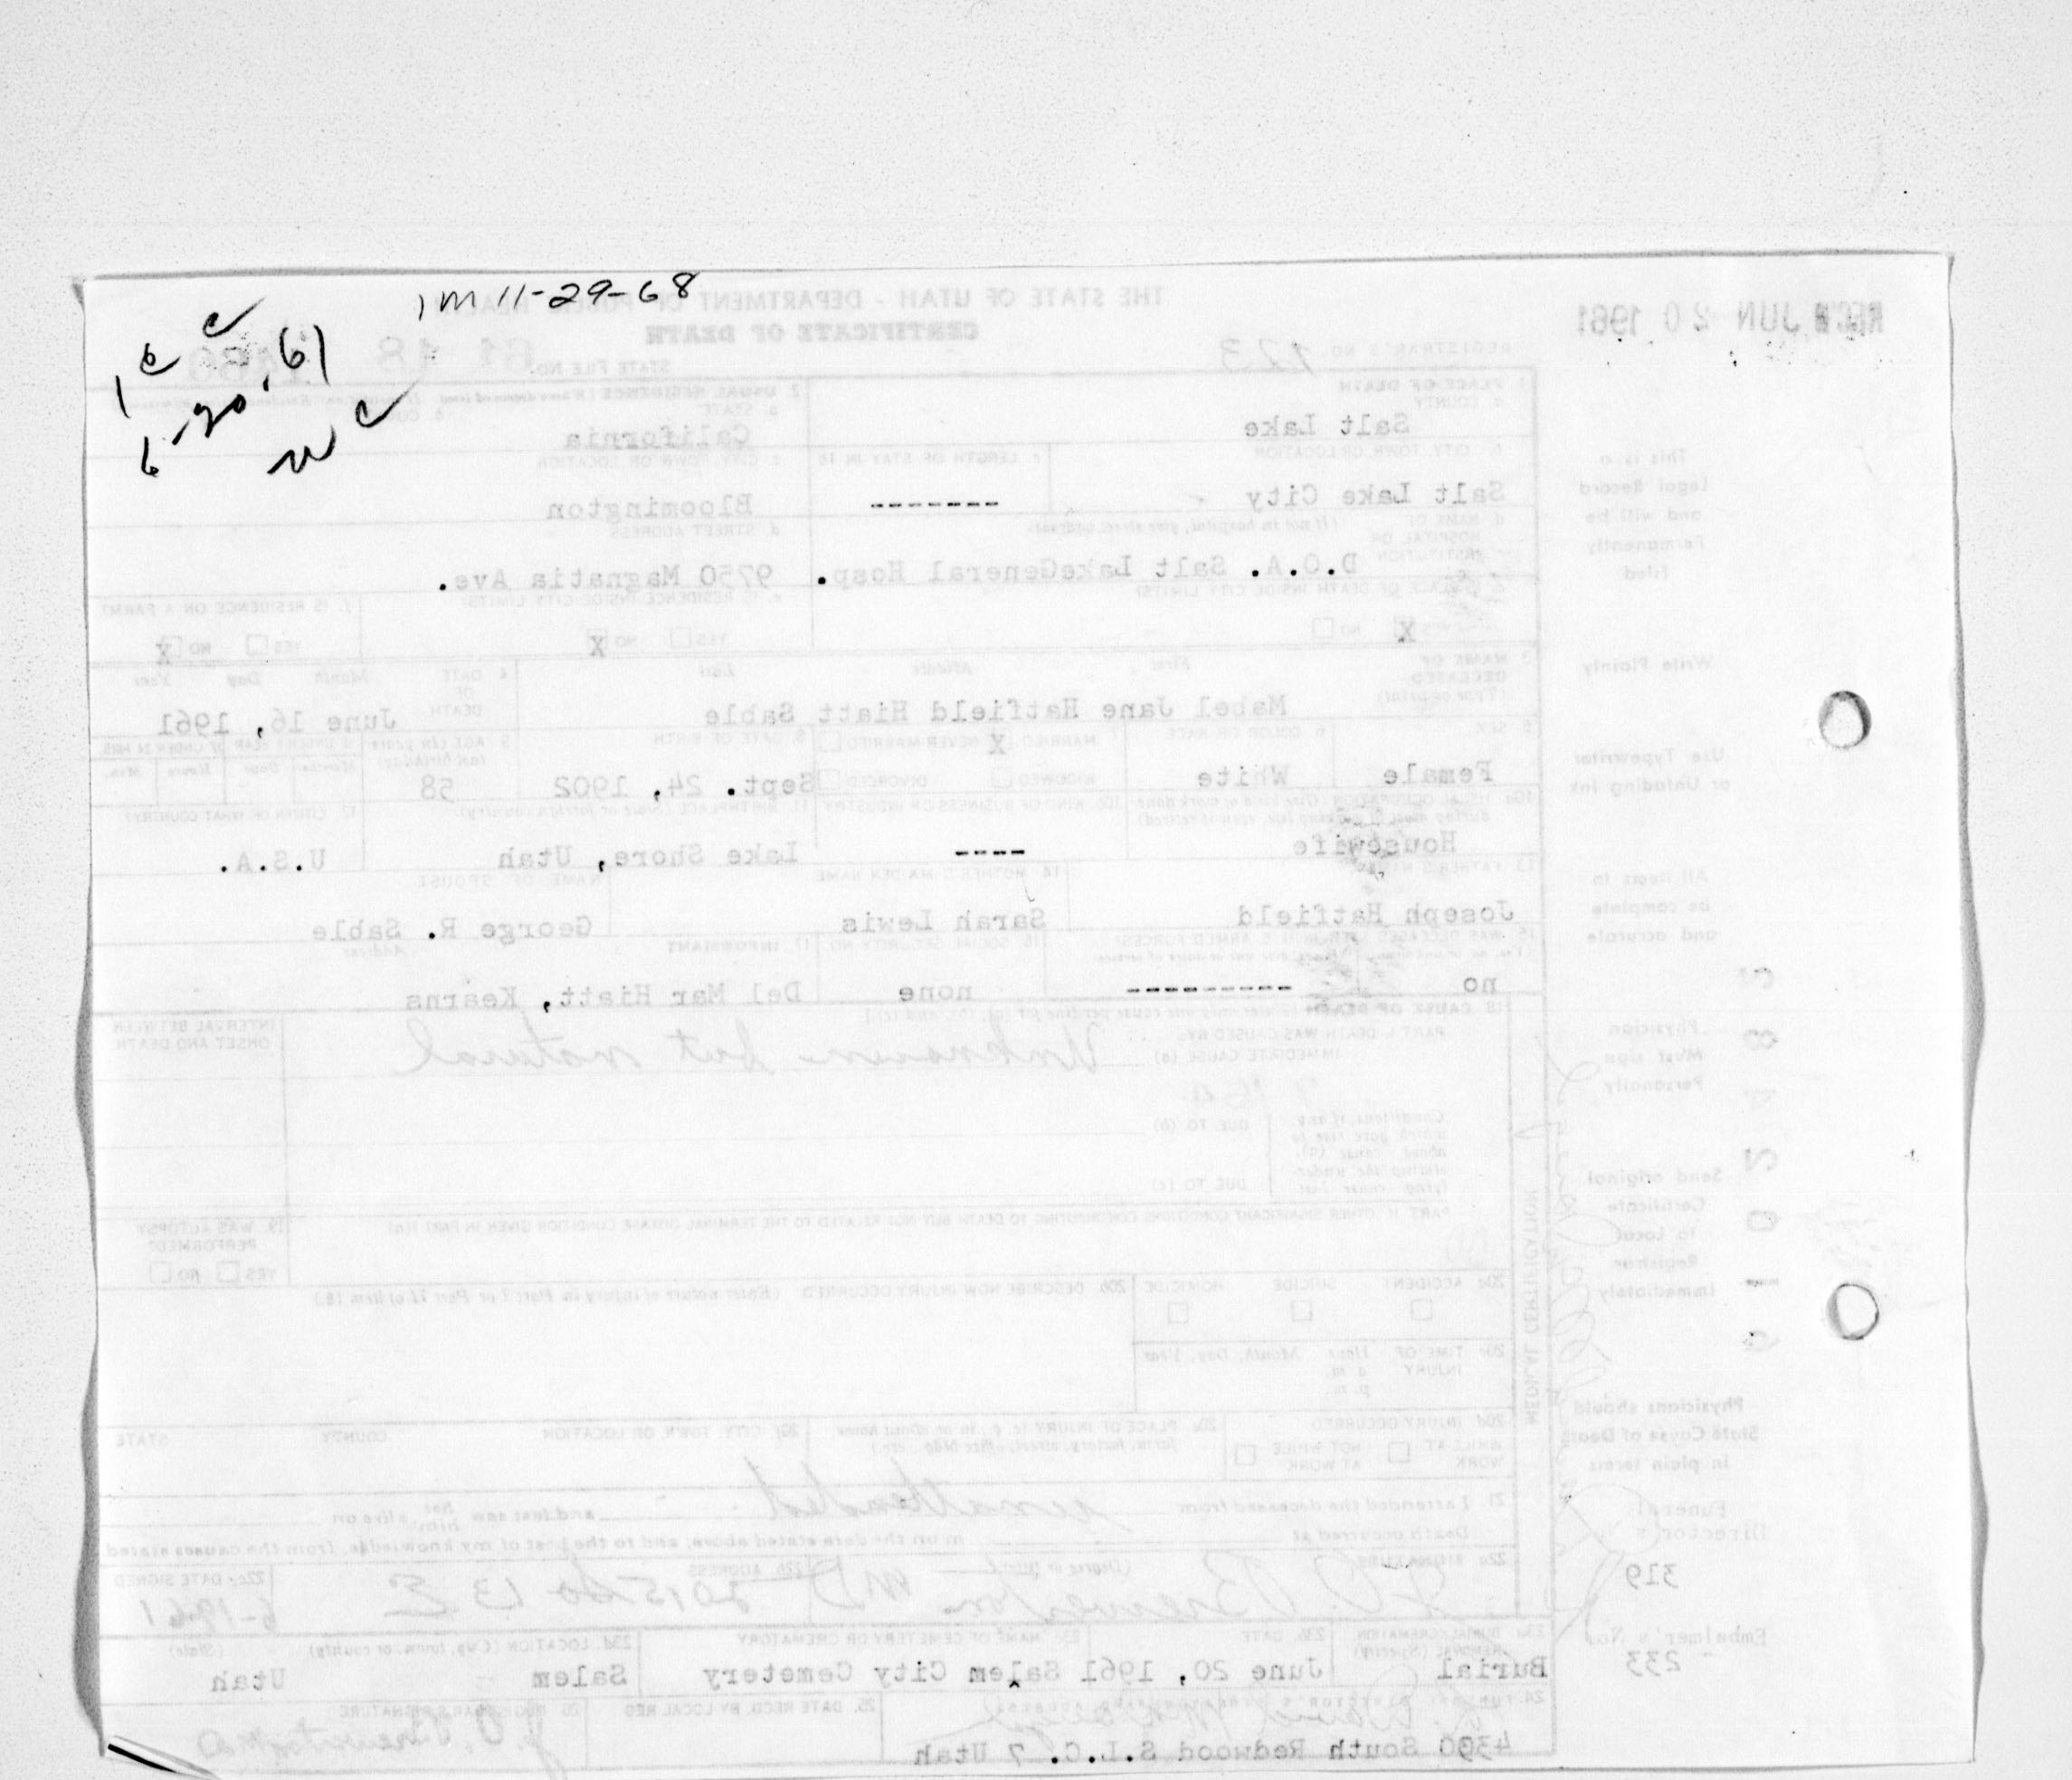 1M 11-29-68
6-20-61
THE STATE OF UTAH - DEPARTMENT OF PUBLIC HEALTH
CERTIFICATE OF DEATH
REC'D JUN 20 1961
REGISTRAR'S NO. 123
STATE FILE NO. 61 18
1. PLACE OF DEATH
a. COUNTY
Salt Lake
2. USUAL RESIDENCE
a. STATE
California
b. CITY, TOWN, OR LOCATION
Salt Lake City
c. LENGTH OF STAY IN 1b
-------
c. CITY, TOWN, OR LOCATION
Bloomington
d. NAME OF HOSPITAL OR INSTITUTION (If not in hospital, give street address)
D.O.A. Salt LakeGeneral Hosp.
d. STREET ADDRESS
9750 Magnatia Ave.
e. IS PLACE OF DEATH INSIDE CITY LIMITS?
YES X NO
e. IS RESIDENCE INSIDE CITY LIMITS?
YES NO X
f. IS RESIDENCE ON A FARM?
YES NO X
3. NAME OF DECEASED (Type or print)
First Middle Last
Mabel Jane Hatfield Hiatt Sable
4. DATE OF DEATH
Month Day Year
June 16, 1961
5. SEX
Female
6. COLOR OR RACE
White
7. MARRIED X NEVER MARRIED
WIDOWED DIVORCED
8. DATE OF BIRTH
Sept. 24, 1902
9. AGE (In years last birthday)
58
IF UNDER 1 YEAR IF UNDER 24 HRS.
Months Days Hours Min.
10a. USUAL OCCUPATION (Give kind of work done during most of working life, even if retired)
Housewife
10b. KIND OF BUSINESS OR INDUSTRY
----
11. BIRTHPLACE (State or foreign country)
Lake Shore, Utah
12. CITIZEN OF WHAT COUNTRY?
U.S.A.
13. FATHER'S NAME
Joseph Hatfield
14. MOTHER'S MAIDEN NAME
Sarah Lewis
NAME OF SPOUSE
George R. Sable
15. WAS DECEASED EVER IN U.S. ARMED FORCES?
no
----------
16. SOCIAL SECURITY NO.
none
17. INFORMANT Address
Del Mar Hiatt, Kearns
18. CAUSE OF DEATH (Enter only one cause per line for (a), (b), and (c).)
PART I. DEATH WAS CAUSED BY:
IMMEDIATE CAUSE (a)
Unknown but natural
INTERVAL BETWEEN ONSET AND DEATH
Conditions, if any, which gave rise to above cause (a), stating the underlying cause last.
DUE TO (b)
DUE TO (c)
PART II. OTHER SIGNIFICANT CONDITIONS CONTRIBUTING TO DEATH BUT NOT RELATED TO THE TERMINAL DISEASE CONDITION GIVEN IN PART I(a)
19. WAS AUTOPSY PERFORMED?
YES NO
20a. ACCIDENT SUICIDE HOMICIDE
20b. DESCRIBE HOW INJURY OCCURRED (Enter nature of injury in Part I or Part II of item 18.)
20c. TIME OF INJURY Hour Month, Day, Year
a.m.
p.m.
20d. INJURY OCCURRED
WHILE AT WORK NOT WHILE AT WORK
20e. PLACE OF INJURY (e.g., in or about home, farm, factory, street, office bldg., etc.)
20f. CITY, TOWN, OR LOCATION COUNTY STATE
21. I attended the deceased from unattended and last saw her him alive on
Death occurred at m on the date stated above, and to the best of my knowledge, from the causes stated
22a. SIGNATURE (Degree or title)
Brewerton MD
22b. ADDRESS
2015 So 13 E
22c. DATE SIGNED
6-19-61
23a. BURIAL, CREMATION, REMOVAL (Specify)
Burial
23b. DATE
June 20, 1961
23c. NAME OF CEMETERY OR CREMATORY
Salem City Cemetery
23d. LOCATION (City, town, or county) (State)
Salem Utah
24. FUNERAL DIRECTOR'S SIGNATURE
4390 South Redwood S.L.C. 7 Utah
25. DATE RECD. BY LOCAL REG.
26. REGISTRAR'S SIGNATURE
MEDICAL CERTIFICATION
This is a
Legal Record
and will be
Permanently
filed
Write Plainly
Use Typewriter
or Unfading Ink
All items to
be complete
and accurate
Physician
Must sign
Personally
Send original
Certificate
to Local
Registrar
Immediately
Physicians should
State Cause of Death
in plain terms
Funeral
Director's No.
319
Embalmer's No.
233